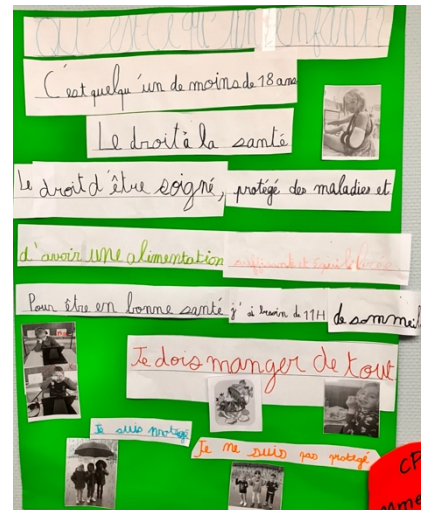 Qu'est-ce qu'un enfant?
C'est quelqu'un de moins de 18 ans
Le droit à la santé
Le droit d'être soigné, protégé des maladies et
d'avoir une alimentation suffisante et équilibrée
Pour être en bonne santé j'ai besoin de 11H de sommeil
Je dois manger de tout
Je suis protégé
Je ne suis pas protégé
CP